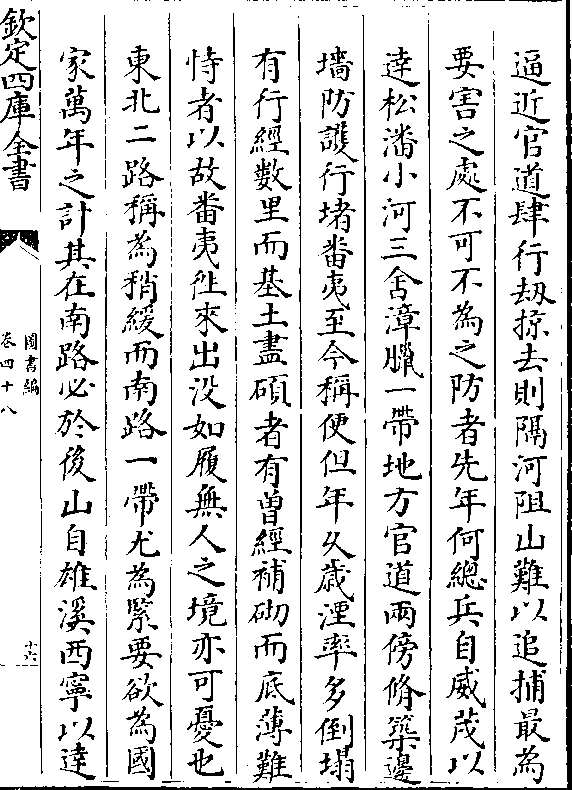 逼近官道肆行刼掠去則隔河阻山難以追捕最為
要害之處不可不為之防者先年何總兵自威茂以
達松潘小河三舍漳臘一帶地方官道兩傍脩築邊
墻防護行堵番夷至今稱便但年乆歲湮率多倒塌
有行經數里而基土盡頽者有曽經補砌而底薄難
恃者以故番夷徃來出没如履無人之境亦可憂也
東北二路稱為稍緩而南路一帶尤為緊要欲為國
家萬年之計其在南路必於後山自雄溪西寧以達
欽定四庫全書
圖書編
卷四十八
十六